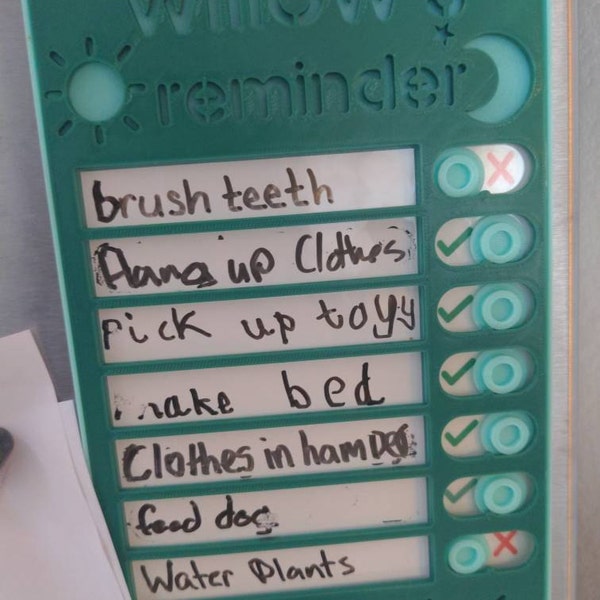 Willow's
reminder
brush teeth
Hang up Clothes
Pick up toys
make bed
Clothes in hamper
feed dog
Water Plants